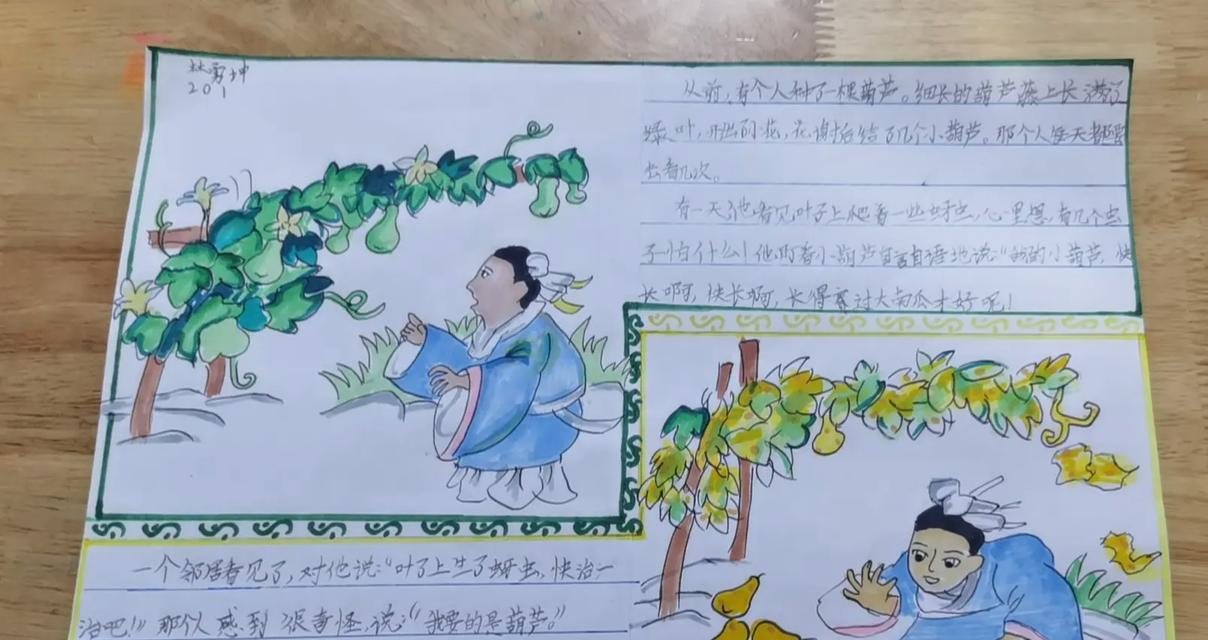 林雪坤
201
从前，有个人种了一棵葫芦。细长的葫芦藤上长满了
绿叶，开出的花，花谢后结了几个小葫芦。那个人每天都要
去看几次。
有一天，他看见叶子上爬着一些蚜虫，心里想，有几个虫
子怕什么！他盯着小葫芦自言自语地说：“我的小葫芦，快
长啊，快长啊，长得赛过大南瓜才好呢！
一个邻居看见了，对他说：“叶子上生了蚜虫，快治一
治吧！”那个人感到很奇怪，说：“我要的是葫芦。”